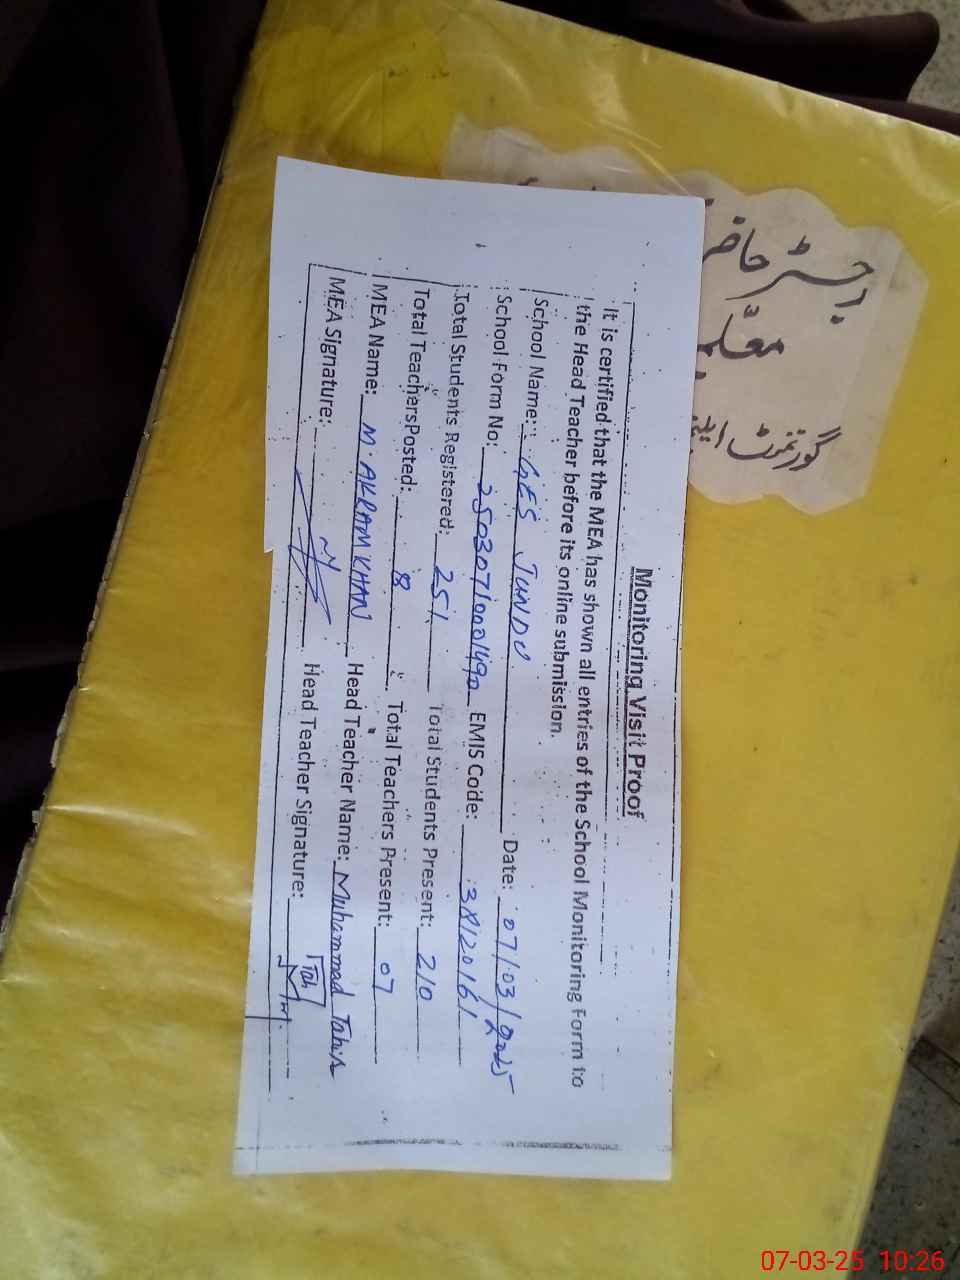 Monitoring Visit Proof
It is certified that the MEA has shown all entries of the School Monitoring Form to
the Head Teacher before its online submission.
School Name: GES JUNDU Date: 07/03/2025
School Form No: 25030710001490 EMIS Code: 38120161
Total Students Registered: 251 Total Students Present: 210
Total Teachers Posted: 8 Total Teachers Present: 07
MEA Name: M. AKRAM KHAN Head Teacher Name: Muhammad Tahir
MEA Signature: Head Teacher Signature:
رجسٹر حاضر
معلم
گورنمنٹ
07-03-25 10:26